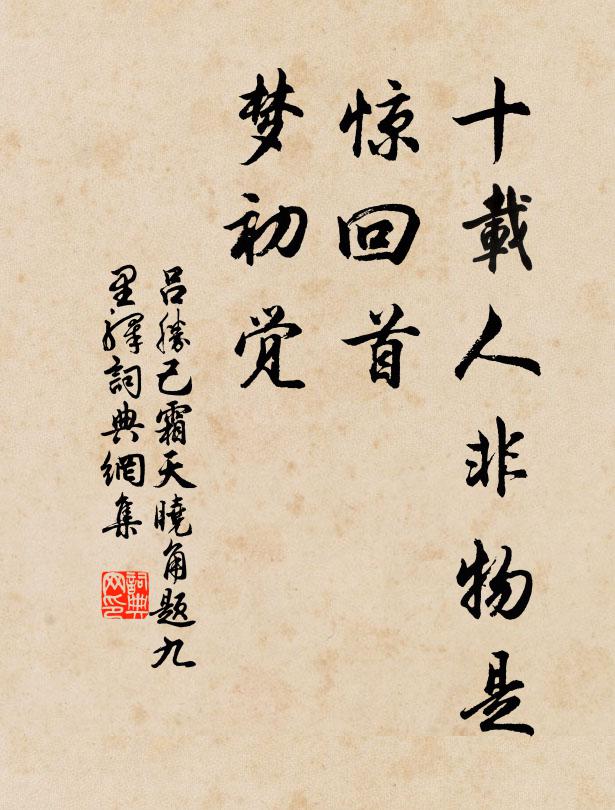 十載人非物是
惊回首
梦初觉
吕勝己霜天曉角題九
里驛詞典網集
詞典
网印